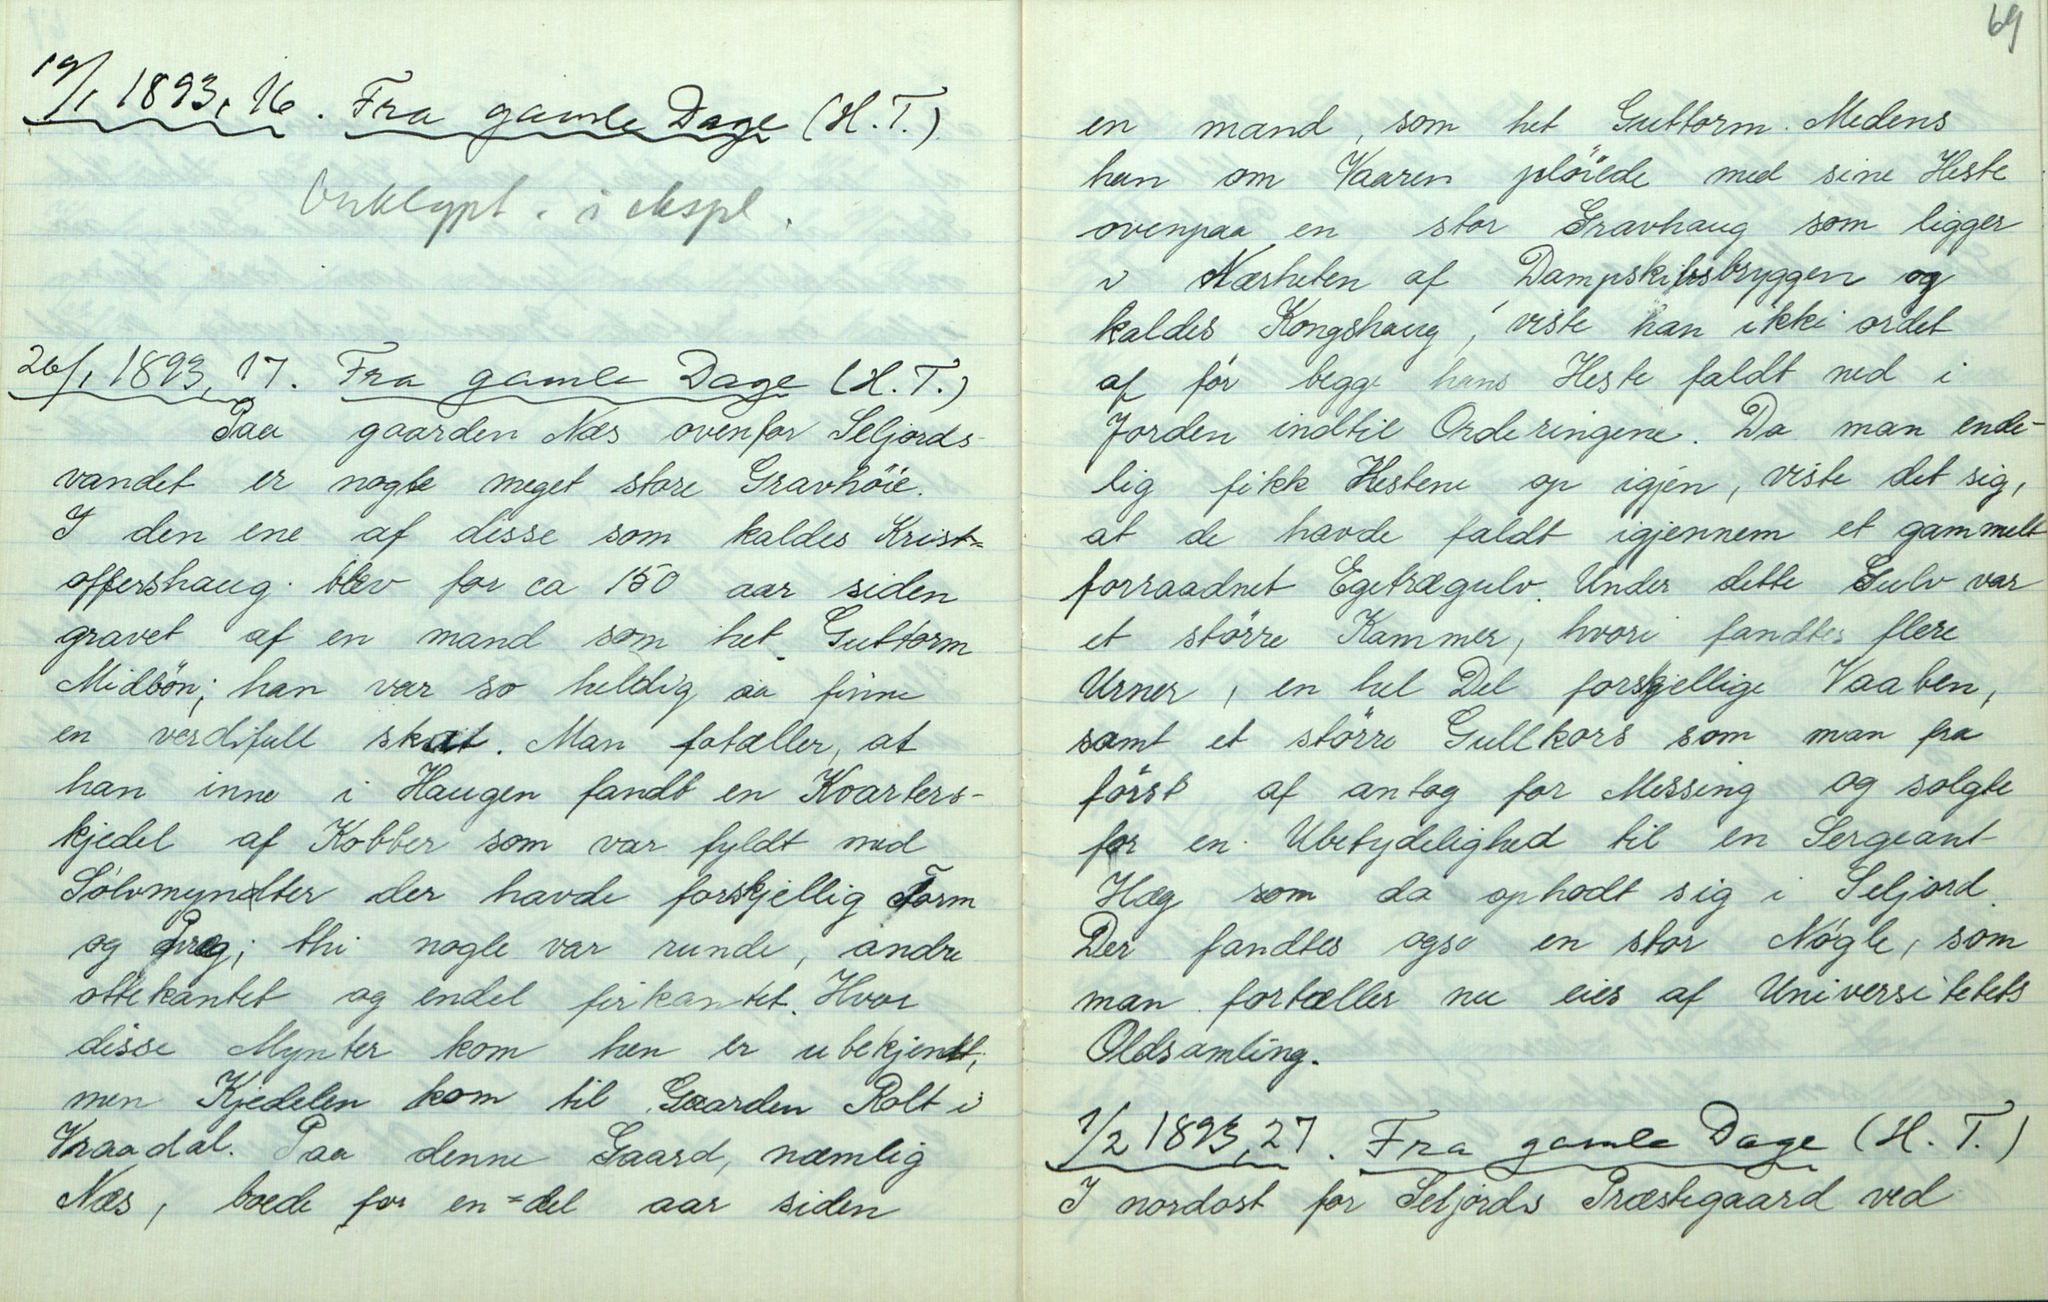 19/1 1893, 16. Fra gamle Dage (H. T.)
i ekspl.
26/1 1893, 17. Fra gamle Dage (H. T.)
Paa gaarden Næs ovenfor Seljords-
vandet er nogle meget store Gravhöie.
I den ene af disse som kaldes Krist=
offershaug. blev for ca 150 aar siden
gravet af en mand som het Guttorm
Midbön; han var so heldig aa finne
en verdifull skat. Man fotæller, at
han inne i Haugen fandt en Kvarters-
kjedel af Kobber som var fyldt med
Sölvmyndter der havde forskjellig Form
og Preg; thi nogle var runde, andre
ottekantet og endel firkantet. Hvor
disse Mynter kom hen er ubekjendt,
men Kjedelen kom til Gaarden Rolt i
Vraadal. Paa denne Gaard, næmlig
Næs, boede for en=del aar siden
69
en mand, som het Guttorm. Medens
han om Vaaren plöiede med sine Heste
ovenpaa en stor Gravhaug som ligger
i Nærheten af Dampskibsbryggen og
kaldes Kongshaug, viste han ikke ordet
af för begge hans Heste faldt ned i
Jorden indtil Orderingene. Da man ende-
lig fikk Hestene op igjen, viste det sig,
at de havde faldt igjennem et gammelt
forraadnet Egetrægulv. Under dette Gulv var
et större Kammer, hvori fandtes flere
Urner, en hel Del forskjellige Vaaben,
samt et större Gullkors som man fra
först af antog for Messing og solgte
for en Ubetydelighed til en Sergeant
Hæg som da ophodt sig i Seljord.
Der fandtes ogso en stor Nögle, som
man fortæller nu eies af Universitetets
Oldsamling.
1/2 1893, 27. Fra gamle Dage (H. T.)
I nordost for Seljords Præstegaard ved